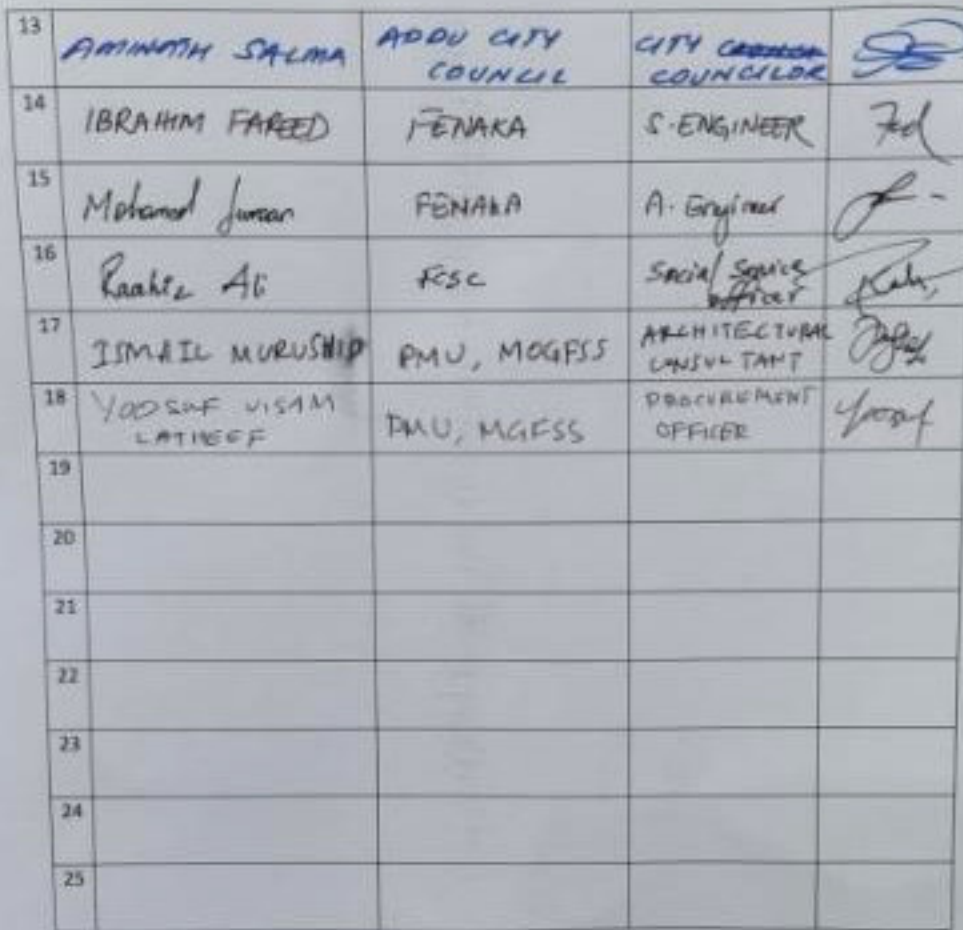 13 AMINATH SALMA ADDU CITY COUNCIL CITY COUNCILOR
14 IBRAHIM FAREED FENAKA S. ENGINEER
15 Mohamed FENAKA A. Engineer
16 Raahiz Ali FCSC Social Service officer
17 ISMAIL MURUSHID PMU, MOGFSS ARCHITECTURAL CONSULTANT
18 YOOSUF VISAM LATHEEF PMU, MGFSS PROCUREMENT OFFICER Yoosuf
19
20
21
22
23
24
25